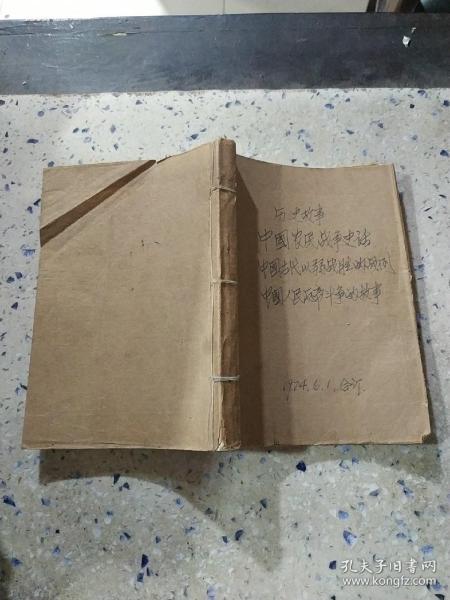 历史故事
中国农民战争史话
中国古代以弱战胜强的战例
中国人民反帝斗争的故事
1974.6.1.合订.
孔夫子旧书网
www.kongfz.com